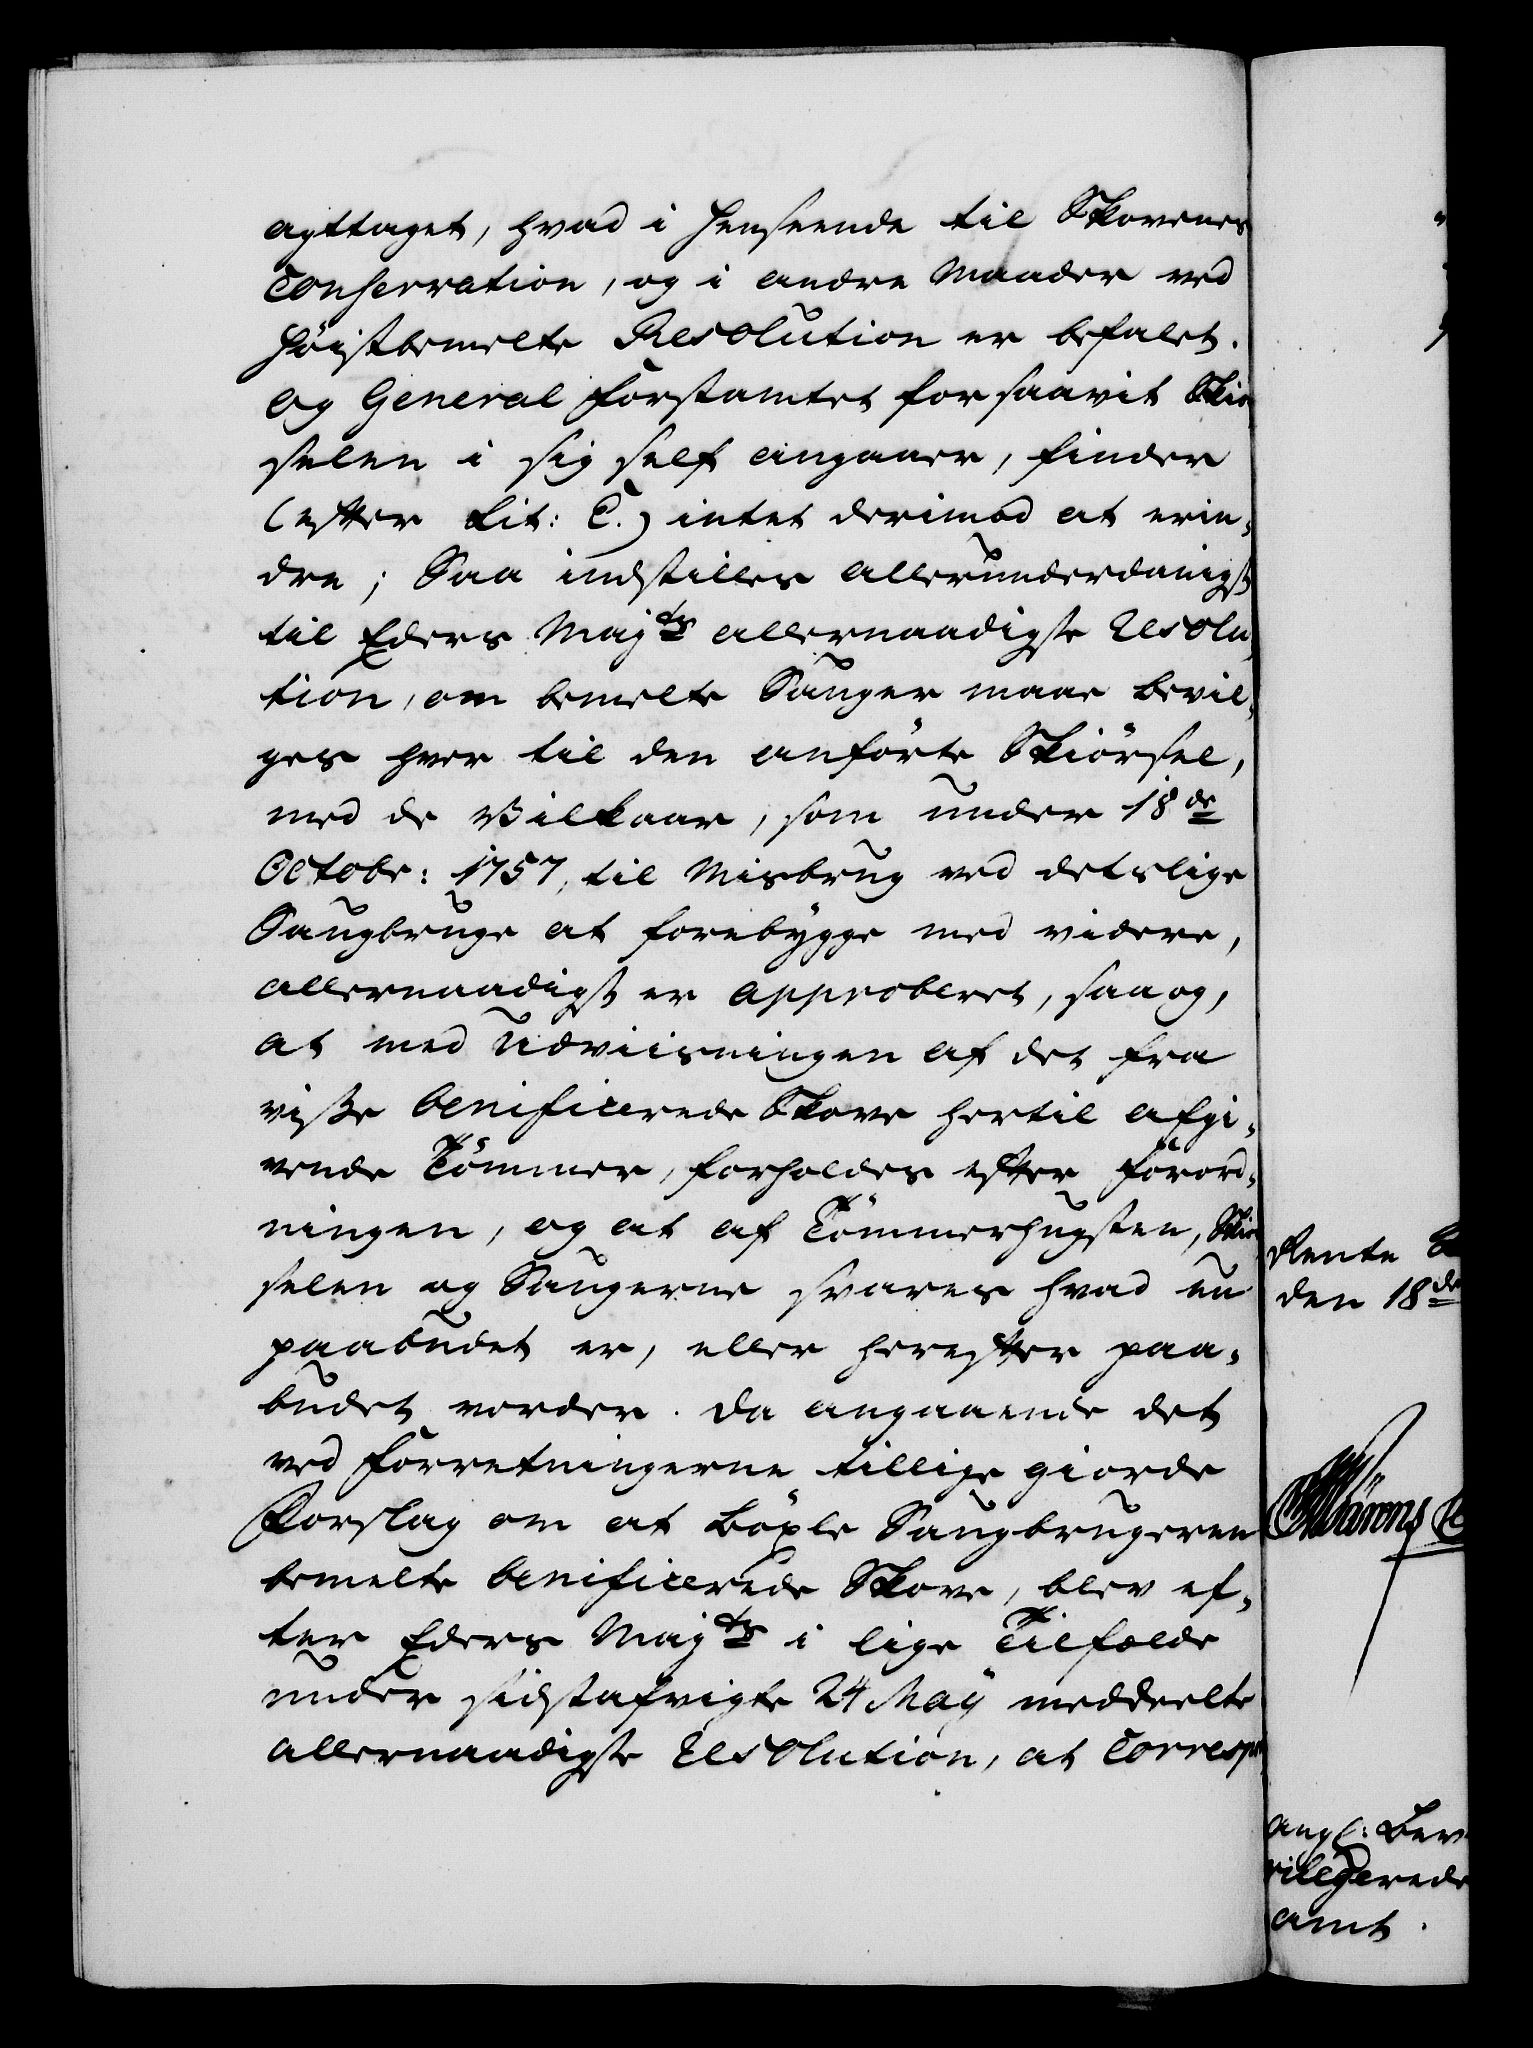 agttaget, hvad i Henseende til Skovenes
Conservation, og i andre Maader ved
höistbemelte Resolution er befalet.
Og General Forstamtet forsaavit Skiör
selen i sig self angaaer, finder
(efter Lit: C.) intet derimod at erin-
dre; Saa indstilles allerunderdanigst
til Eders Majts allernaadigste Resolu
tion, om bemelte Sauger maae bevil-
ges hver til den anförte Skiörsel,
med de Vilkaar, som under 18de
Octobr: 1757, til Misbrug ved detslige
Saugbruge at forebygge med videre,
allernaadigst er approberet, saa og,
at med Udviisningen af det fra
visse benificerede Skove hertil afgi-
vende Tömmer, forholdes efter Forord-
ningen, og at af Tömmerhugsten, Skiör
selen og Saugerne svares hvad nu
paabudet er, eller herefter paa-
budet vorder. Da angaaende det
ved Forretningerne tillige giorde
Forslag om at Böxle Saugbrugeren
bemelte benificerede Skove, blev ef-
ter Eders Majts i lige Tilfælde
under sidstafvigte 24 Maÿ meddeelte
allernaadigste Resolution, at Corresp
Rente
den 18de
angl:
amt.